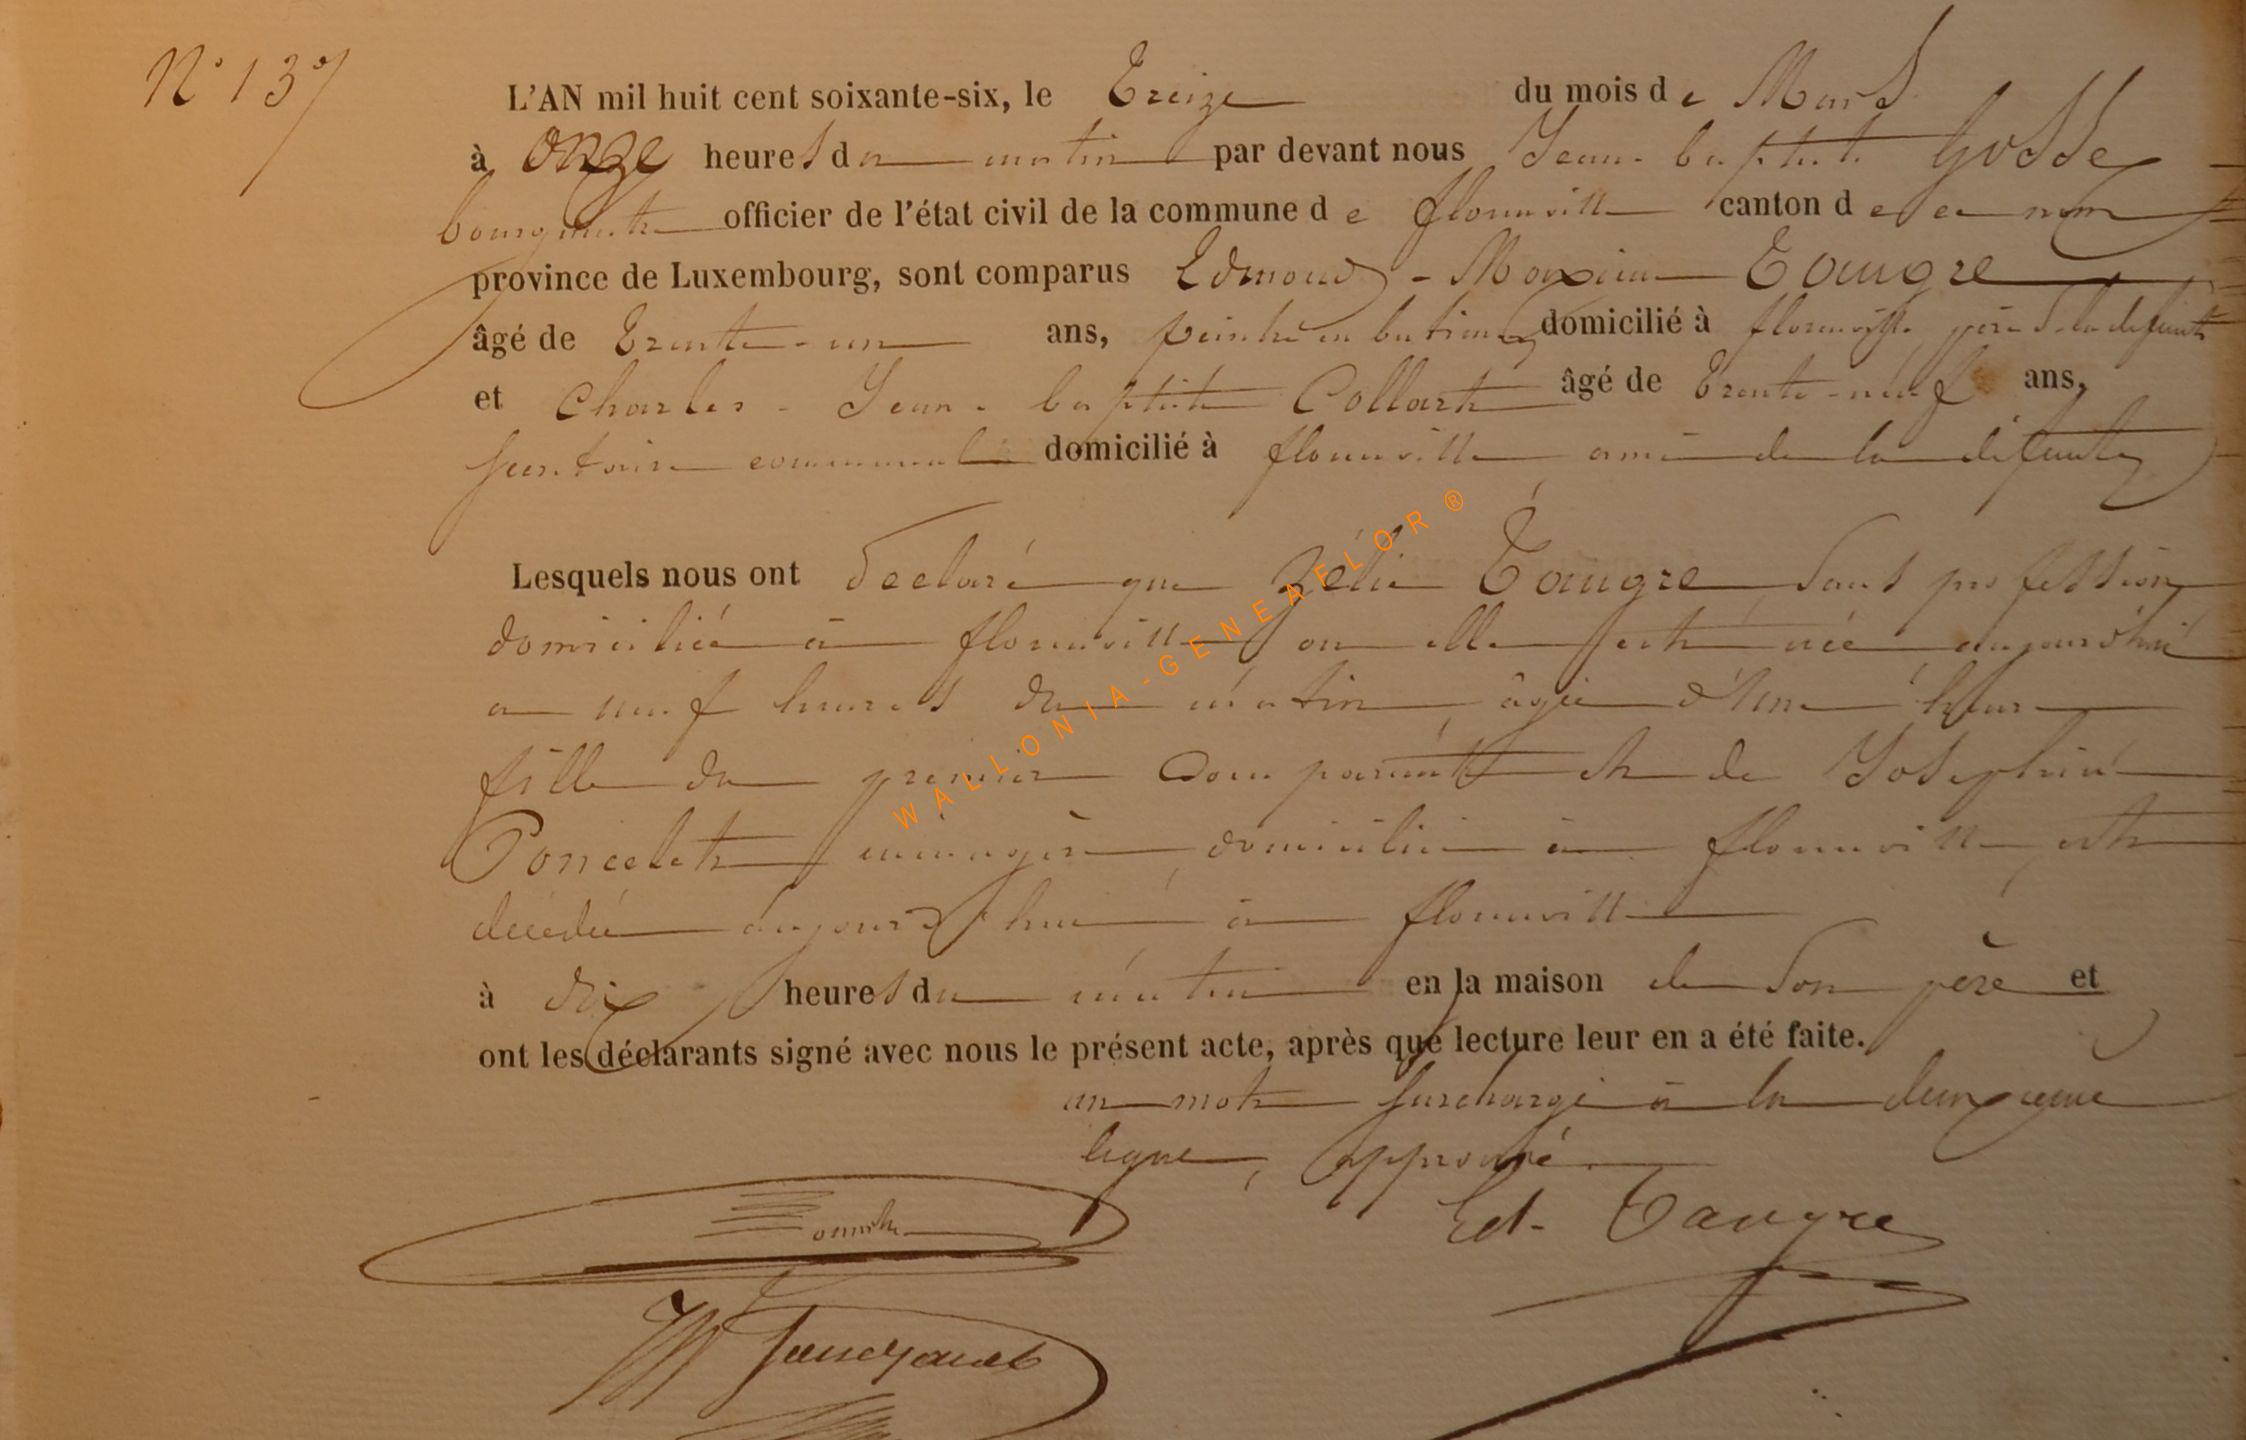 N° 13
L'AN mil huit cent soixante-six, le Treize du mois de Mars
à onze heures du matin par devant nous Jean-baptiste Gosse
bourgmestre officier de l'état civil de la commune de florenville canton de ce nom
province de Luxembourg, sont comparus Edmond-Maximin Taugre
âgé de Trente-un ans, peintre en batiment domicilié à florenville père de la défunte
et Charles-Jean-baptiste Collart âgé de Trente-neuf ans,
secrétaire communal domicilié à florenville ami de la défunte
Lesquels nous ont déclaré que Zélie Taugre, sans profession
domiciliée à florenville où elle est née aujourd'hui
a neuf heures du matin, âgée d'une heure
fille du premier comparant et de Joséphine
Poncelet ménagère, domiciliée à florenville, est
décédée aujourd'hui à florenville
à dix heures du matin en la maison de son père et
ont les déclarants signé avec nous le présent acte, après que lecture leur en a été faite.
un mot surchargé à la deuxième
ligne, approuvé.
Ed. Taugre
WALLONIA-GENEAFLOR®